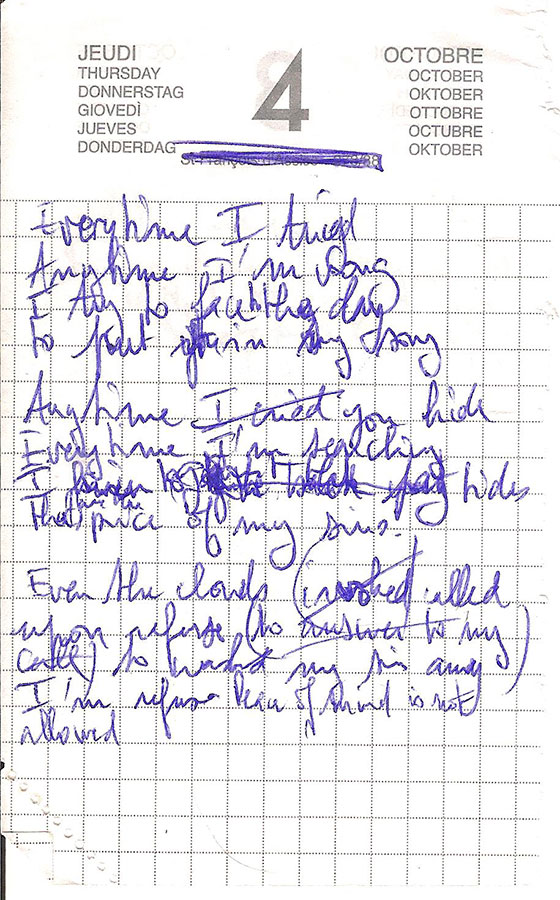 JEUDI
THURSDAY
DONNERSTAG
GIOVEDÌ
JUEVES
DONDERDAG
4
OCTOBRE
OCTOBER
OKTOBER
OTTOBRE
OCTUBRE
OKTOBER
Everytime I tried
Anytime I'm song
I try to face the day
to put you in my song
Anytime I cried you hide
Everytime I'm serching
I to hides
the price of my sins.
Even the clouds (invoked called
upon refuse (to answer to my
call) to washed my sin away)
I'm refuse Peace of mind is not
allowed